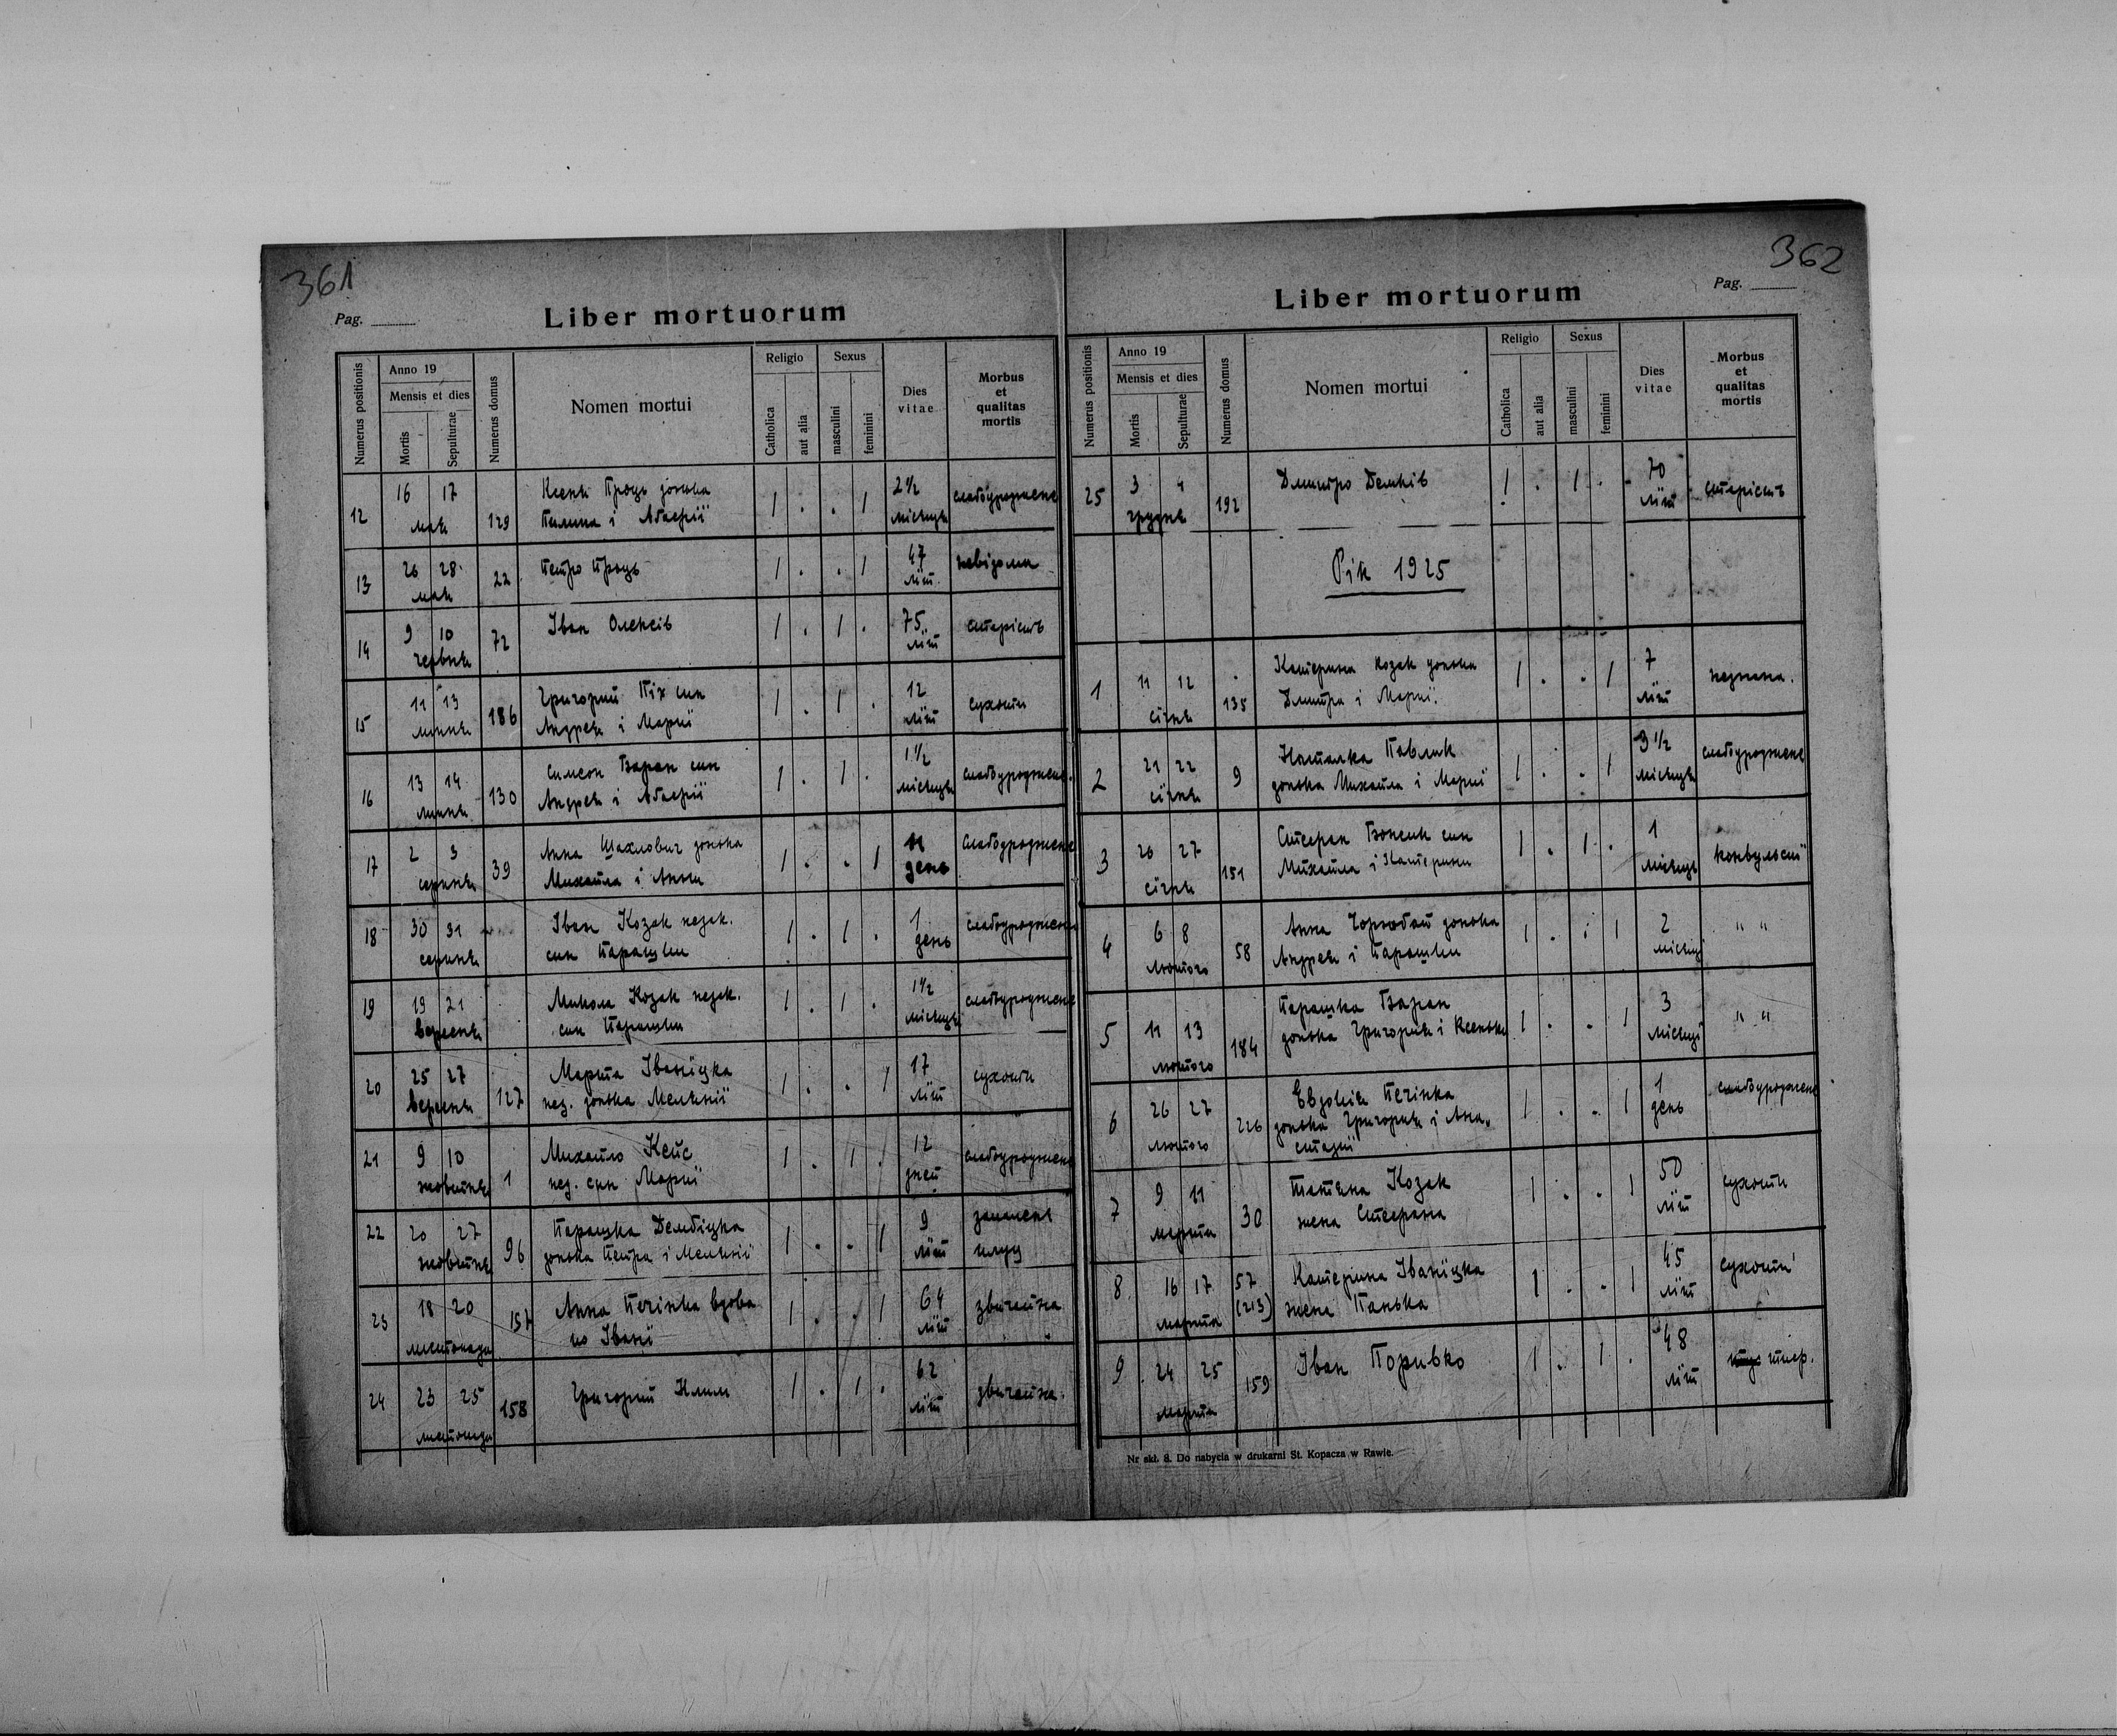 361
Pag.
Liber mortuorum
Numerus positionis
Anno 19
Mensis et dies
Mortis
Sepulturae
Numerus domus
Nomen mortui
Religio
Catholica
aut alia
Sexus
masculini
feminini
Dies vitae
Morbus et qualitas mortis
12 16 17 129 Ксеня Проць донька 1 . . 1 2 1/2 слабуродження
мая і місяць
13 26 28 22 Петро Проць 1 . . 1 47 невідома
мая літ
14 9 10 72 Іван Олексів 1 . 1 . 75 старість
червня літ
15 11 13 186 Григорий Піх син 1 . 1 . 12 сухоти
липня Андрея і Марії літ
16 13 14 130 Симеон Баран син 1 . 1 . 1 1/2 слабуродження
липня Андрея і місяць
17 2 3 39 Анна Шахлович донька 1 . . 1 11 слабодродження
серпня Михайла і Анни день
18 30 31 Іван Козак незак. 1 . 1 . 1 слабуродження
серпня син Парашки день
19 19 21 Микола Козак незак. 1 . 1 . 1 1/2 слабуродження
вересня син Парашки місяць
20 25 27 127 Марта Іваніцка 1 . . 1 17 сухоти
вересня нез. донька Меланії літ
21 9 10 1 Михайло Кейс 1 . 1 . 12 слабодродження
жовтня нез. син Марії дней
22 20 27 96 Парашка Дембіцка 1 . . 1 9 запаленя
жовтня донька Петра і Меланії літ плуц
23 18 20 157 Анна Печінка вдова 1 . . 1 64 звичайна
листопада по Івані літ
24 23 25 158 Григорий Клим 1 . 1 . 62 звичайна.
листопада літ
362
Pag.
Liber mortuorum
Numerus positionis
Anno 19
Mensis et dies
Mortis
Sepulturae
Numerus domus
Nomen mortui
Religio
Catholica
aut alia
Sexus
masculini
feminini
Dies vitae
Morbus et qualitas mortis
25 3 4 192 Дмитро Демків 1 . 1 . 70 старість
грудня літ
Рік 1925
1 11 12 135 Катерина Козак донька 1 . . 1 7 незнана.
січня Дмитра і Марії. літ
2 21 22 9 Наталка Павлик 1 . . 1 3 1/2 слабуродження
січня донька Михайла і Марії місяць
3 26 27 151 Стефан син 1 . 1 . 1 конвульсії
січня Михайла і Катерини місяць
4 6 8 58 Анна донька 1 . . 1 2 " "
лютого Андрея і Парашки місяці
5 11 13 184 Парашка Баран 1 . . 1 3 " "
лютого донька Григория і Ксеньки місяці
6 26 27 226 Евдокія Печінка 1 . . 1 1 слабодродження
лютого донька Григория і Ана- день
стазії
7 9 11 30 Татяна Козак 1 . . 1 50 сухоти
марта жена Стефана літ
8 16 17 57 (213) Катерина Іваніцка 1 . . 1 45 сухоти
марта жена Панька літ
9 24 25 159 Іван Поривко 1 . 1 . 48
марта літ
Nr skł. 8. Do nabycia w drukarni St. Kopacza w Rawie.